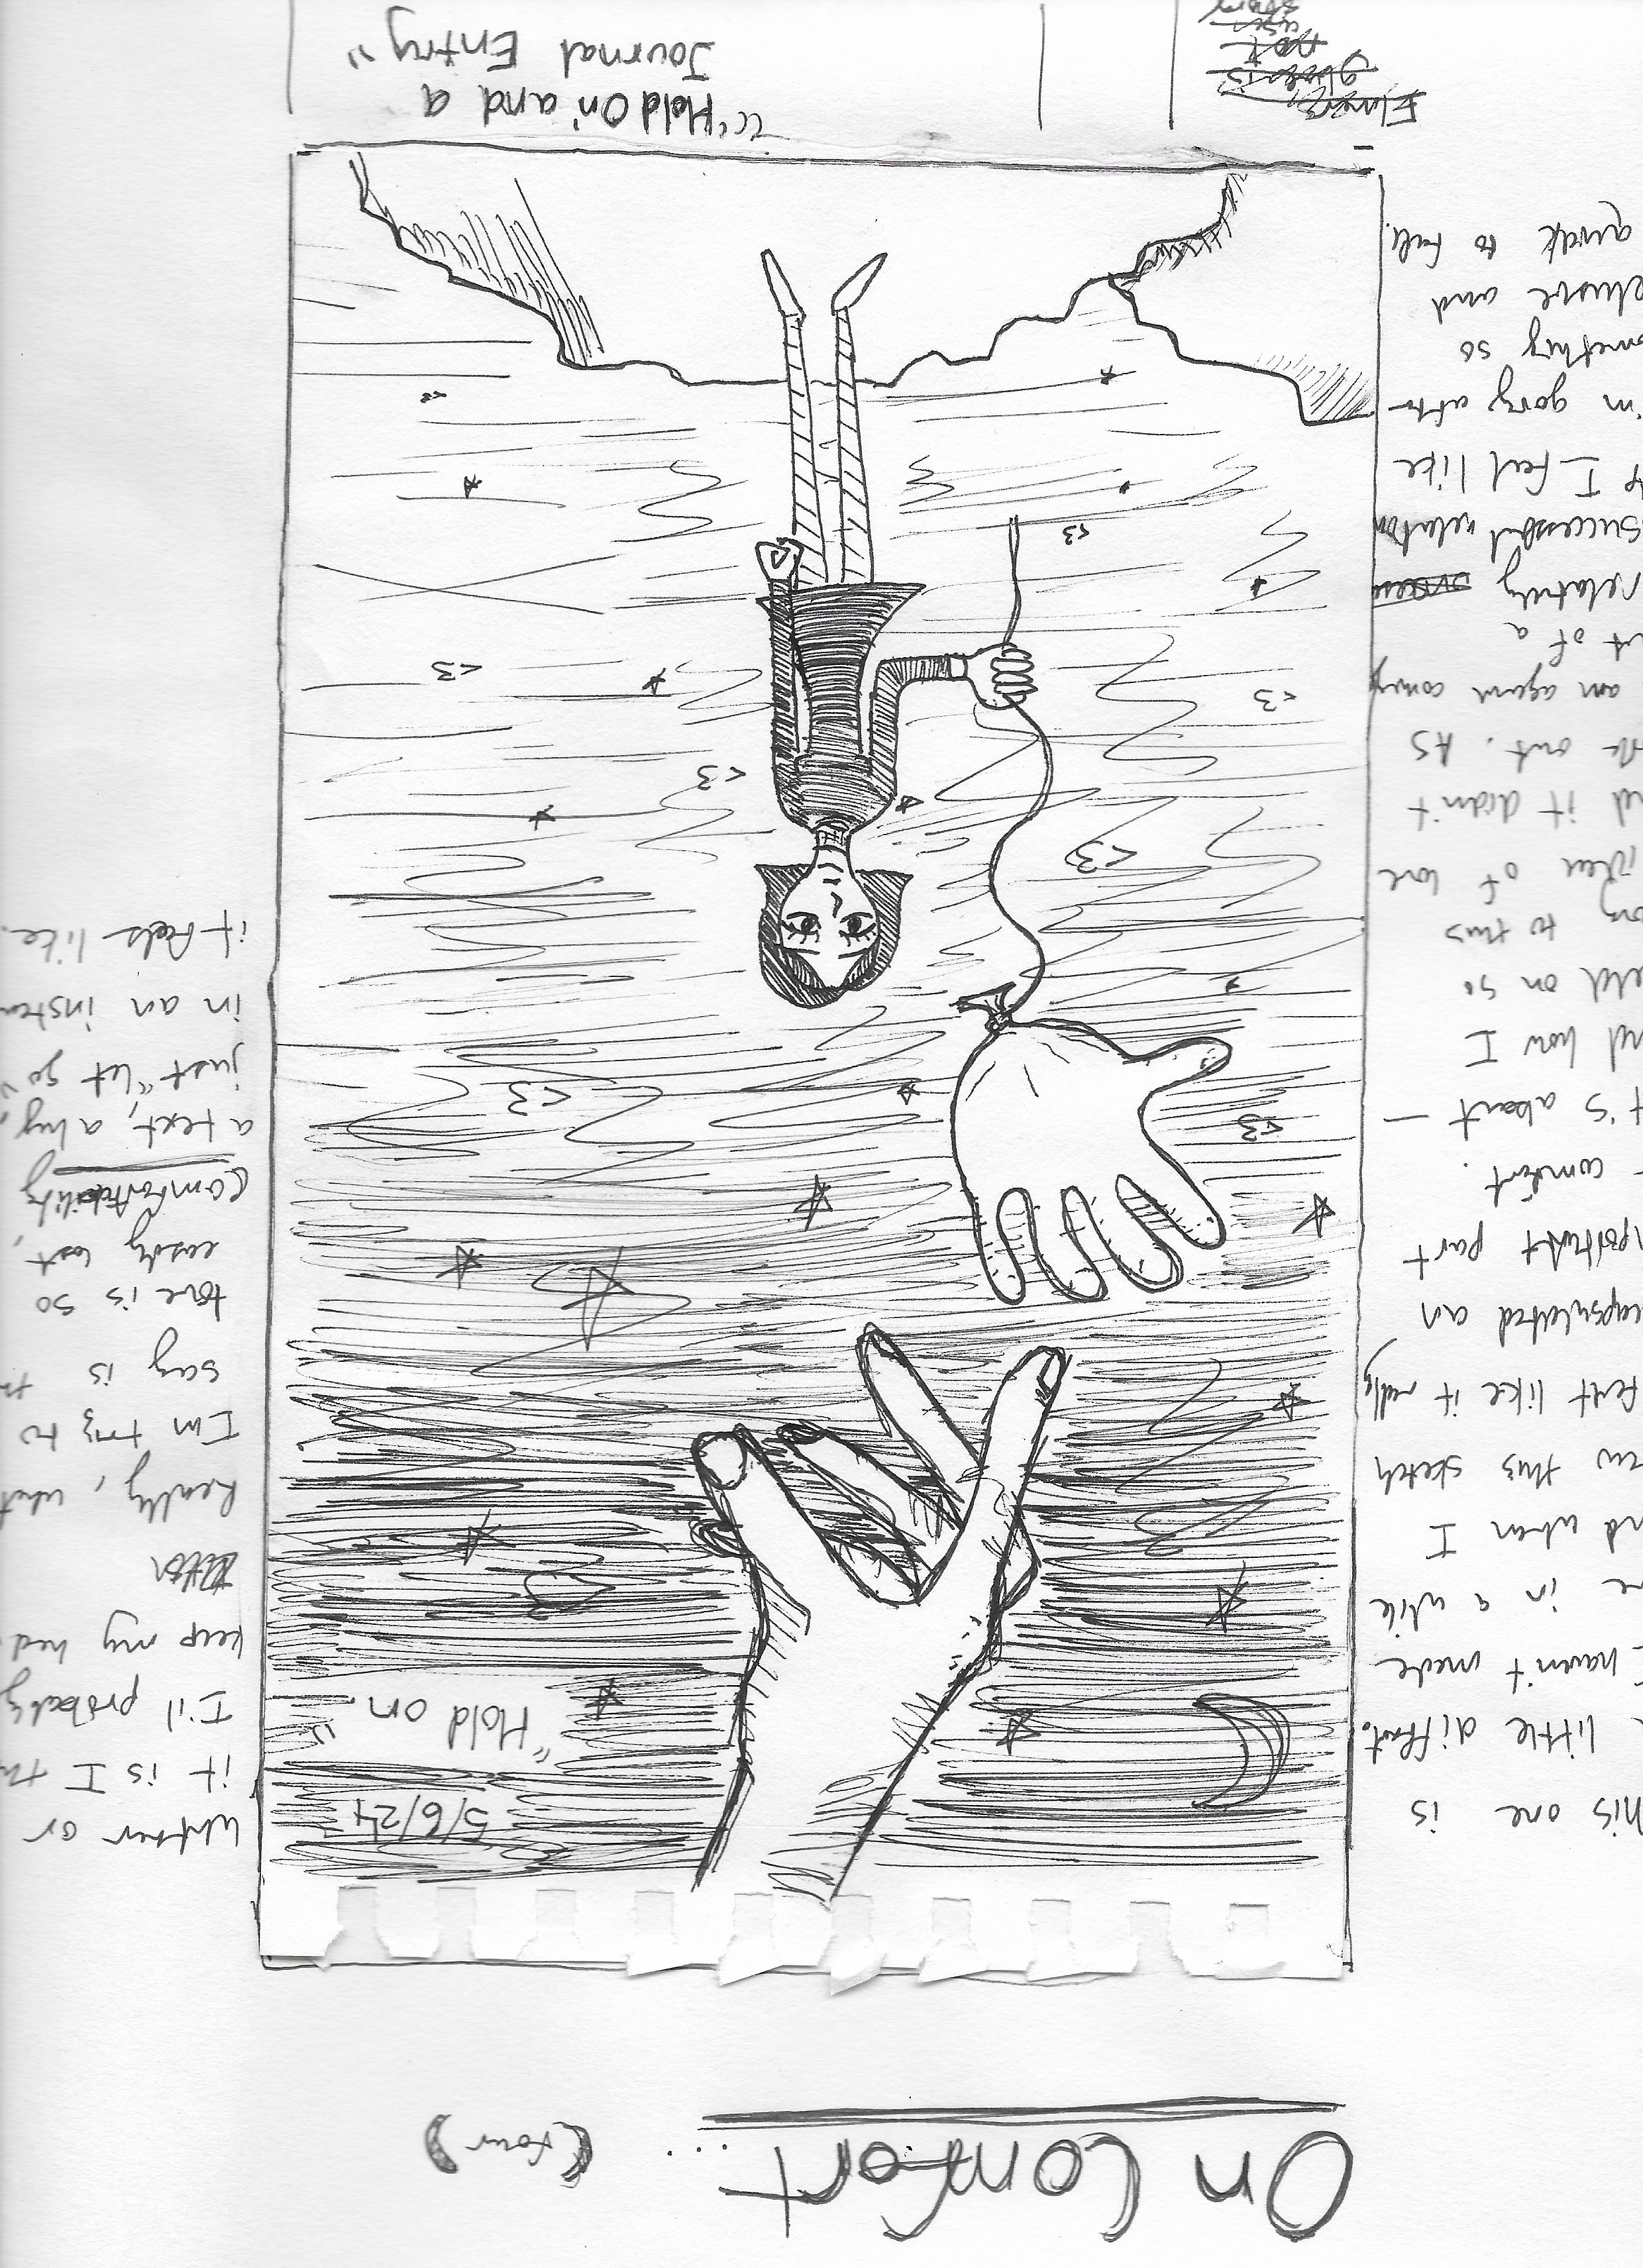 On Comfort... (four)
his one is
little diffrnt.
I haven't made
in a while
nd when I
ew this sketch
felt like it really
capsulated an
mportant part
comfort.
t's about —
nd how I
eld on so
ong to this
idea of love
nd it didn't
rk out. As
am again coming
ut of a
relativly
successful relation
I feel like
'm going after
omething so
elusive and
quick to fall.
5/6/24
"Hold on."
<3
<3
<3
<3
<3
<3
<3
<3
<3
<3
Whether or
it is I th
I'll probably
keep my hed
Really, what
I'm trying to
say is th
love is so
easily lost,
comfortability
a text, a hug,
just "let go"
in an instan
it feels like.
Elmers
glue is
not
strong
"'Hold On' and a
Journal Entry"